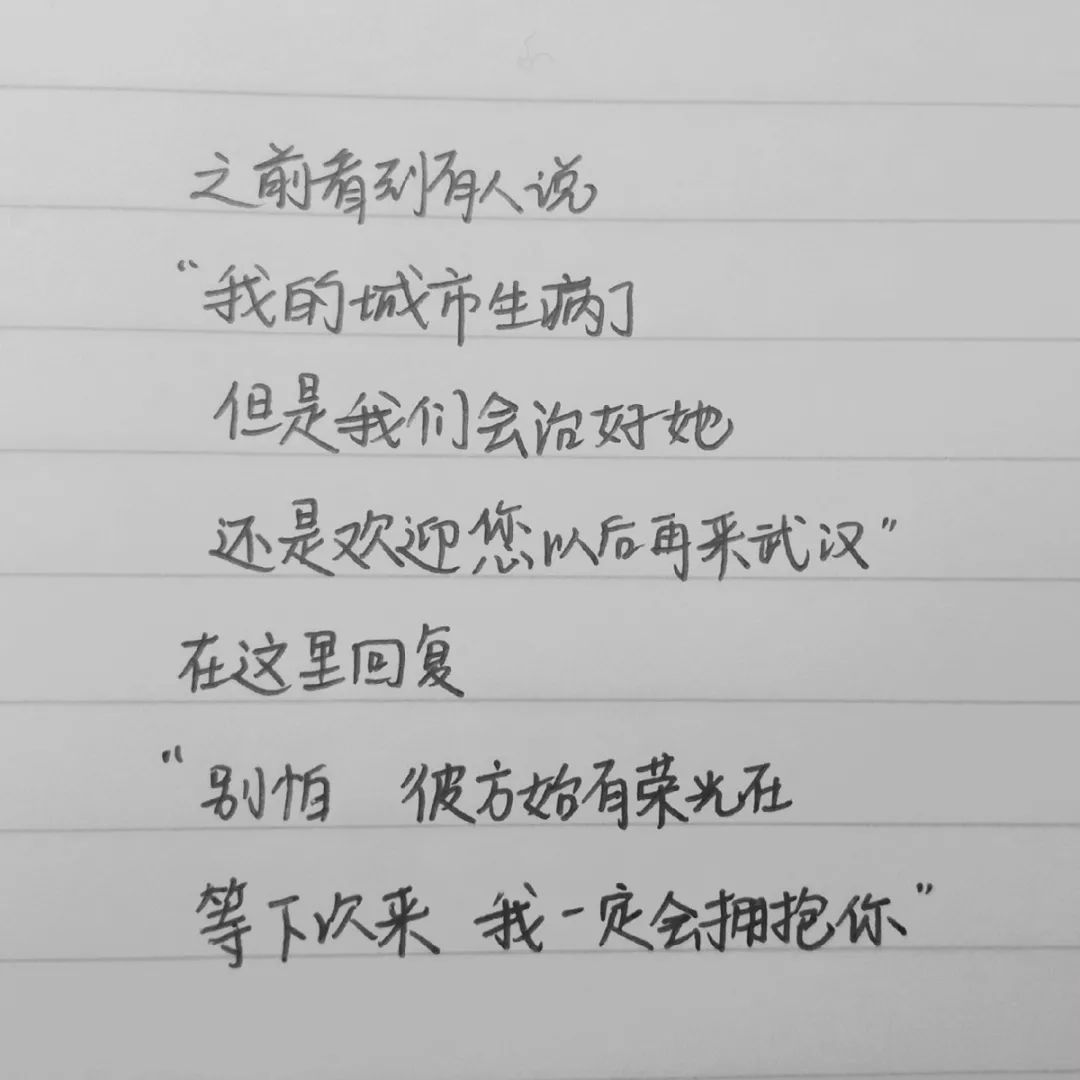 之前看到有人说
“我的城市生病了
但是我们会治好她
还是欢迎您以后再来武汉”
在这里回复
“别怕 彼方始有荣光在
等下次来 我一定会拥抱你”